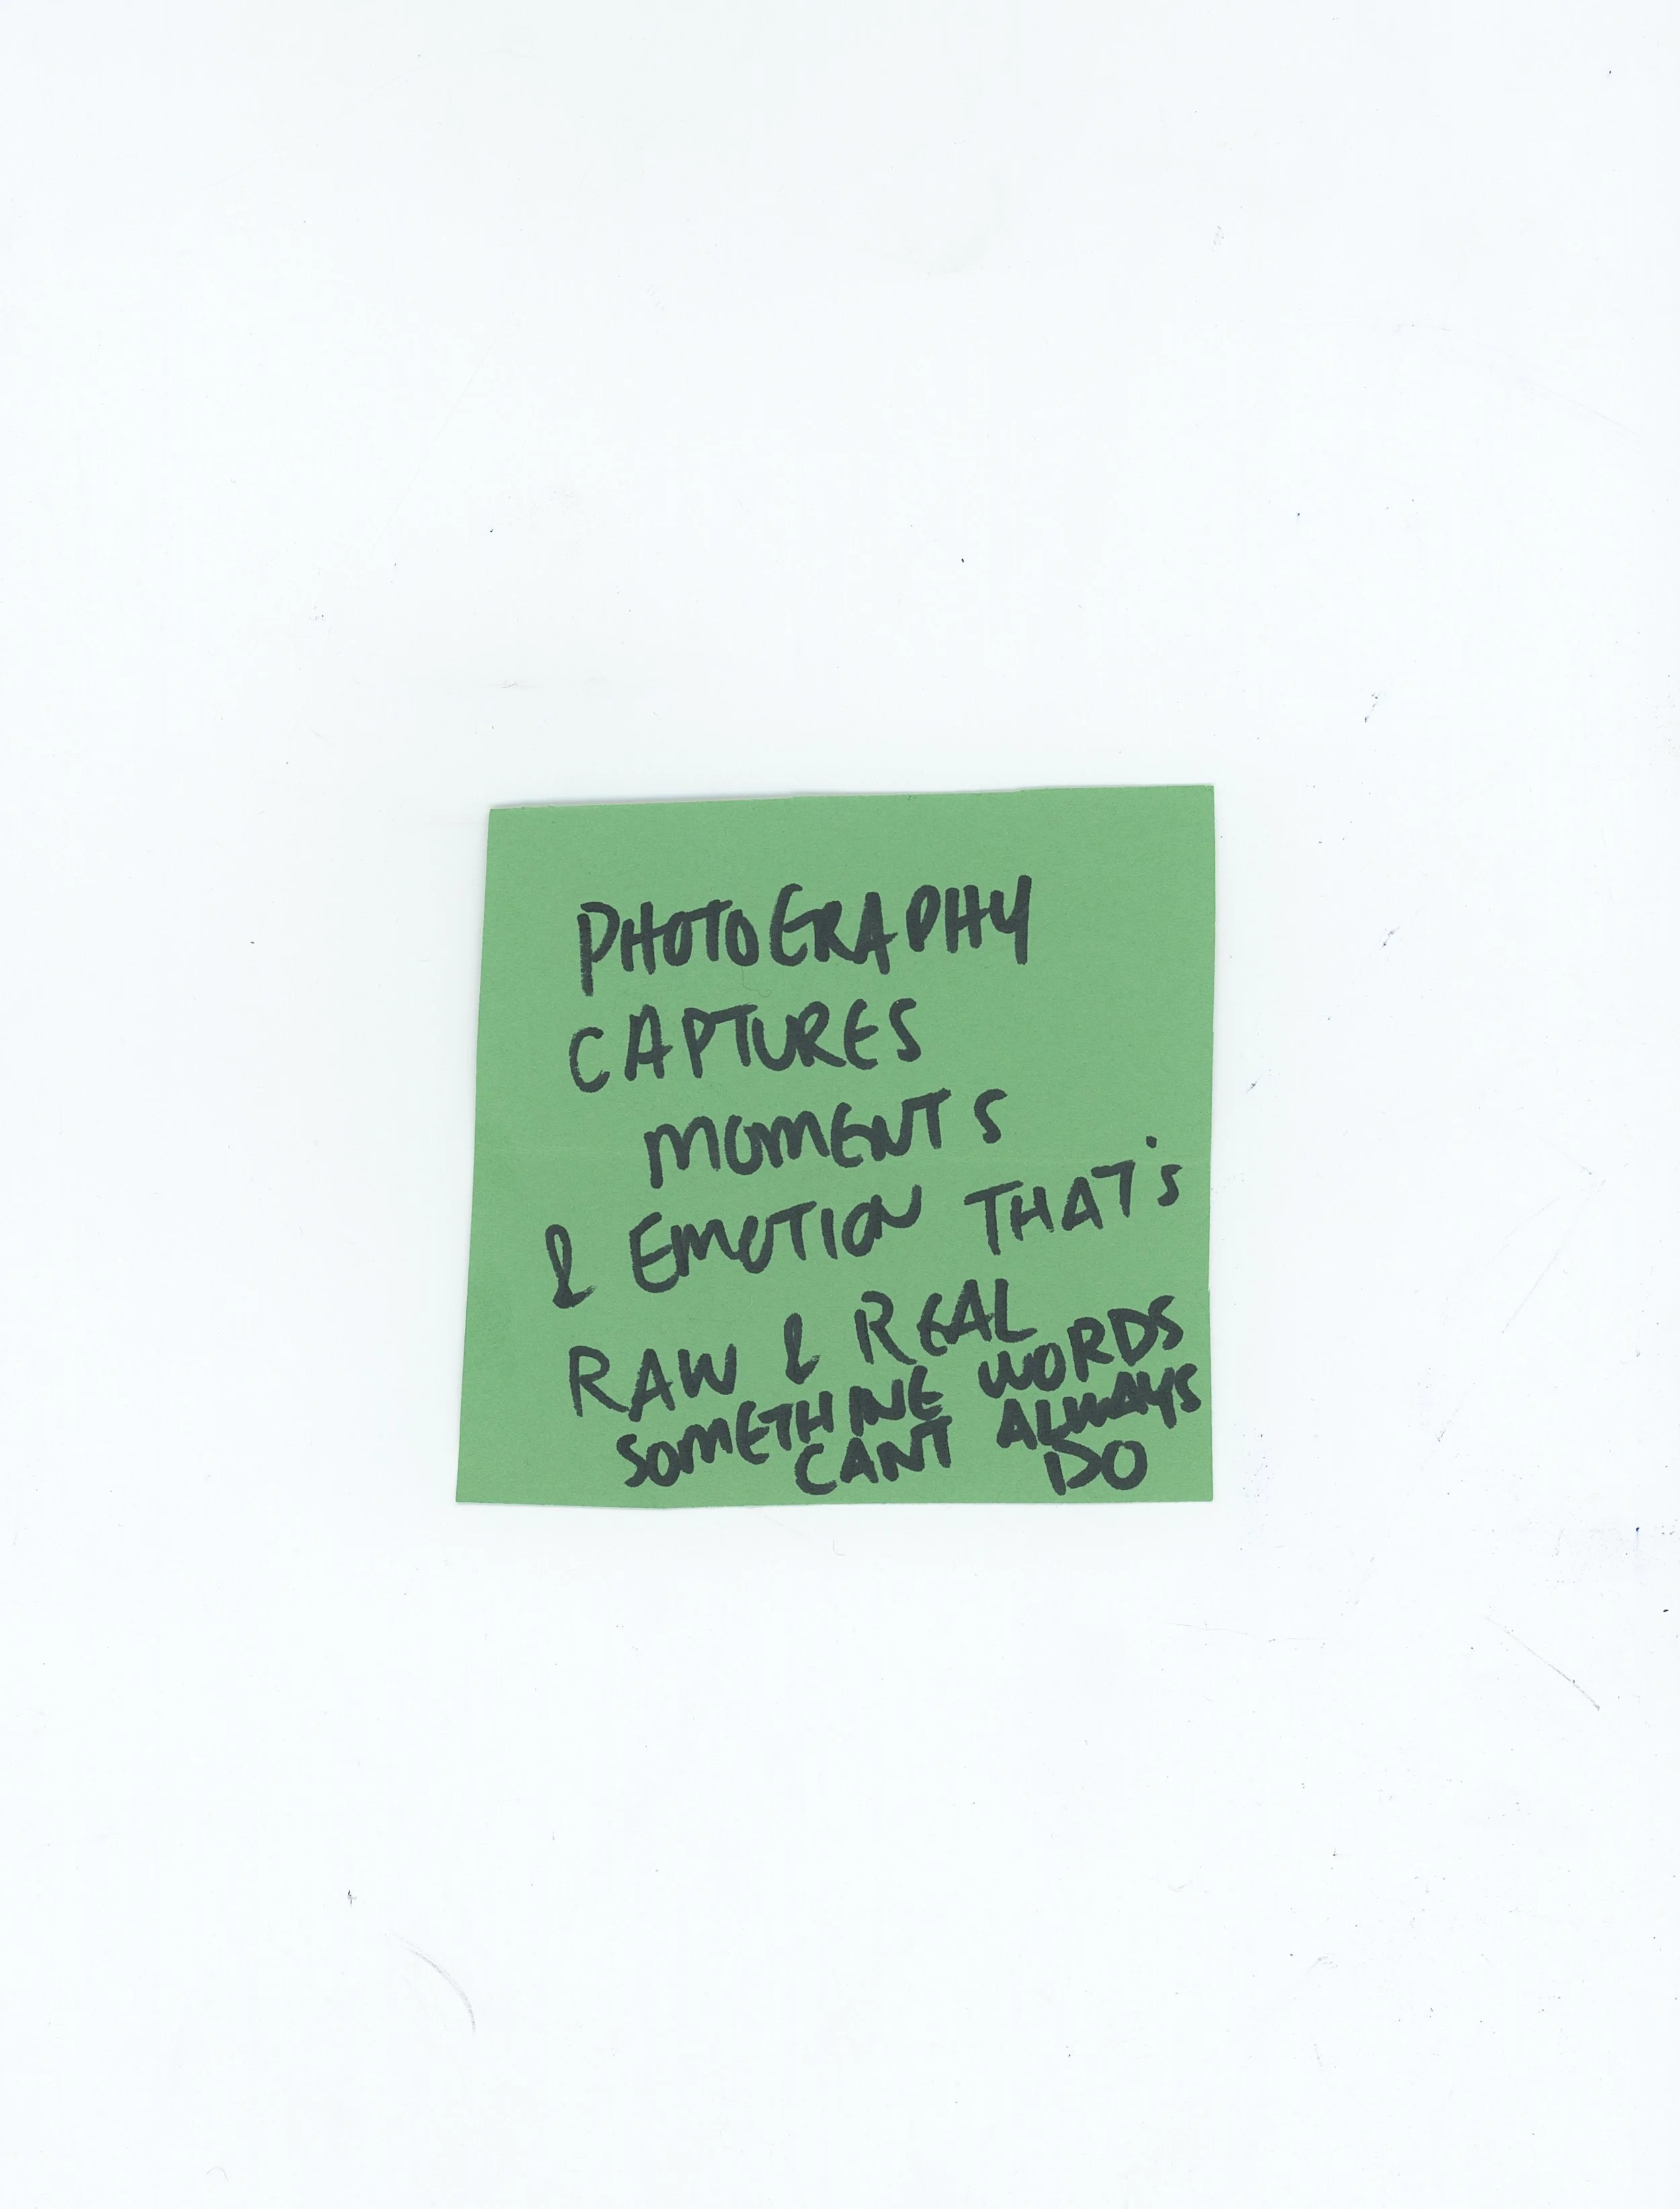 PHOTOGRAPHY
CAPTURES
MOMENTS
& EMOTION THAT'S
RAW & REAL
SOMETHING WORDS
CANT ALWAYS
DO